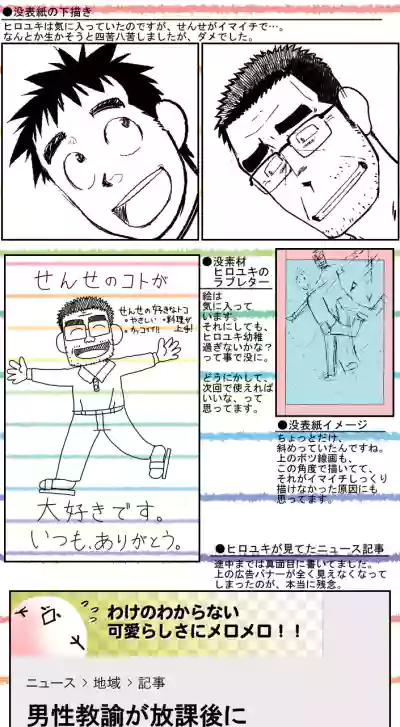 ●没表紙の下描き
ヒロユキは気に入っていたのですが、せんせがイマイチで…。
なんとか生かそうと四苦八苦しましたが、ダメでした。
せんせのコトが
せんせの好きなトコ
・やさしい ・料理が上手!
・カッコイイ!!
大好きです。
いつも、ありがとう。
●没素材
ヒロユキの
ラブレター
絵は
気に入って
います。
それにしても、
ヒロユキ幼稚
過ぎないかな?
って事で没に。
どうにかして、
次回で使えれば
いいな、って
思ってます。
●没表紙イメージ
ちょっとだけ、
斜めっていたんですね。
上のボツ線画も、
この角度で描いてて、
それがイマイチしっくり
描けなかった原因にも
思ってます。
●ヒロユキが見てたニュース記事
途中までは真面目に書いてました。
上の広告バナーが全く見えなくなって
しまったのが、本当に残念。
わけのわからない
可愛らしさにメロメロ!!
ニュース > 地域 > 記事
男性教諭が放課後に